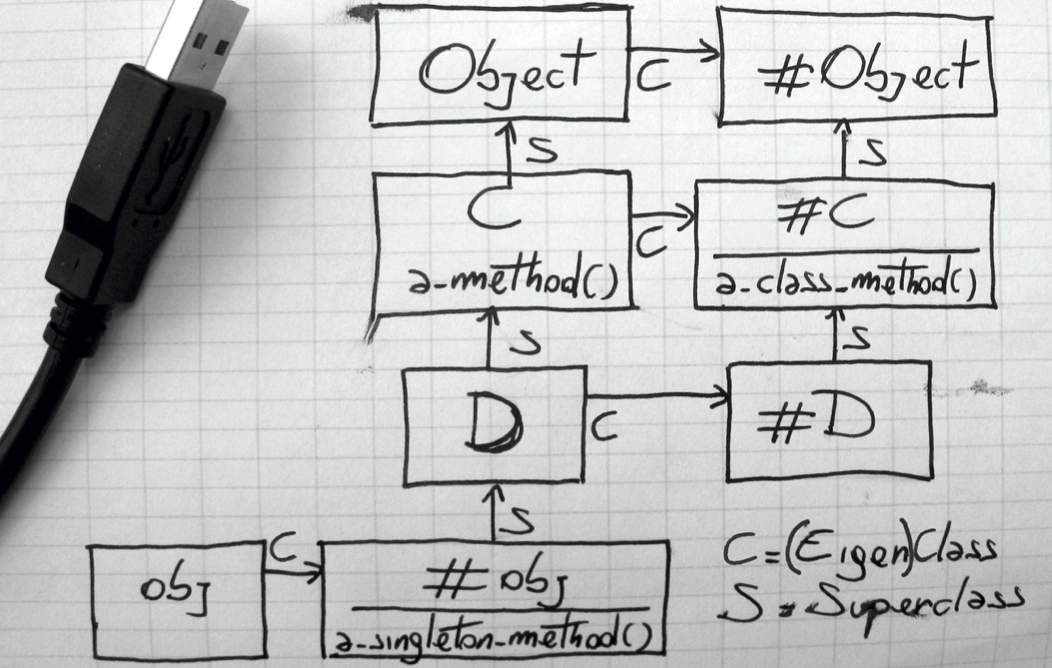 Object
C
#Object
S
S
C
a_method()
C
#C
a_class_method()
S
S
D
C
#D
S
obj
C
#obj
a_singleton_method()
C=(Eigen)Class
S=Superclass